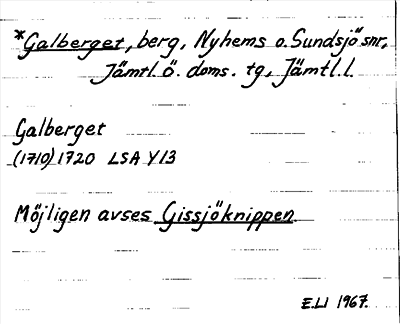 *Galberget, berg, Nyhems o. Sundsjö snr,
Jämtl. ö. doms. tg, Jämtl. l.
Galberget
(1710) 1720 LSA Y13
Möjligen avses Gissjöknippen
E.LI 1967.